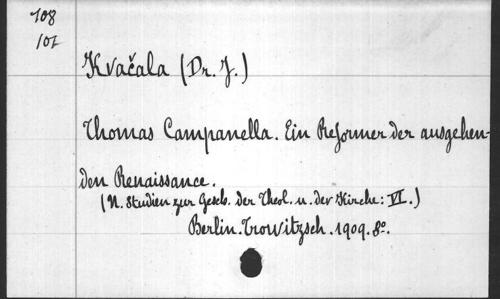 108
101
Kvačala (Dr. J.)
Thomas Campanella. Ein Reformer der ausgehen-
den Renaissance.
(N. Studien zur Gesch. der Theol. u. der Kirche: VI.)
Berlin. Trowitzsch. 1909. 8º.